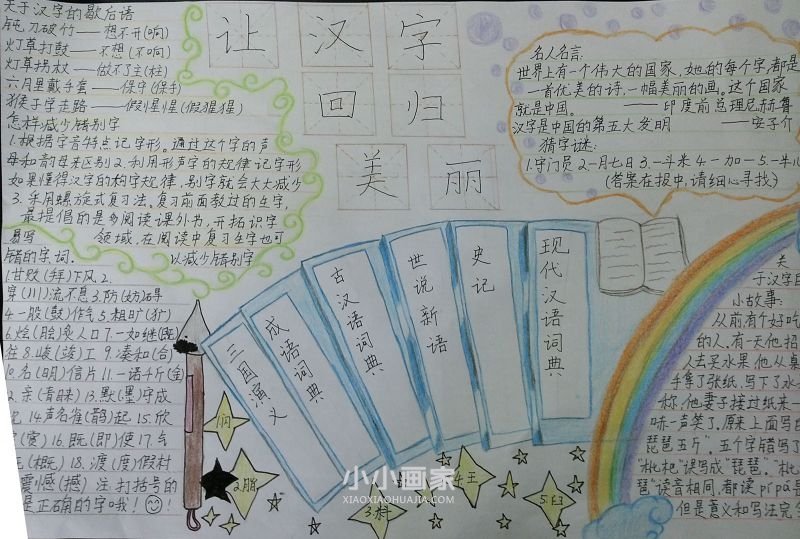 关于汉字的歇后语
钝刀破竹——想不开(响)
灯草打鼓——不想(不响)
灯草拐杖——做不了主(柱)
六月里戴手套——保守(保手)
猴子学走路——假惺惺(假猩猩)
怎样减少错别字
1.根据字音特点记字形。通过这个字的声
母和韵母来区别2.利用形声字的规律记字形
如果懂得汉字的构字规律，别字就会大大减少
3.采用螺旋式复习法。复习前面教过的生字，
最提倡的是多阅读课外书，开拓识字
领域，在阅读中复习生字也可
以减少错别字
易写
错的字词.
1.甘败(拜)下风 2.
穿(川)流不息3.防(妨)碍
4.一股(鼓)作气5.粗旷(犷)
6.烩(脍)炙人口7.一如继(既)
往8.峻(竣)工 9.凑和(合)
10.名(明)信片11.一诺千斤(金)
亲(青睐)13.默(墨)守成
14.声名雀(鹊)起 15.欣
16.既(即)使 17.气
(概)18.渡(度)假村
震憾(撼)注 打括号的
是正确的字哦！
让汉字
回归
美丽
名人名言:
世界上有一个伟大的国家，她的每个字,都是
一首优美的诗，一幅美丽的画。这个国家
就是中国。——印度前总理尼赫鲁
汉字是中国的第五大发明——安子介
猜字谜:
1.守门员 2.一月七日 3.一斗米 4.一加一 5.一牛
(答案在报中，请细心寻找)
三国演义
成语词典
古汉语词典
世说新语
史记
现代汉语词典
1.闪
2.脂
3.料
4.王
5.
关
于汉字
小故事:
从前有个好吃
的人，有一天他招
人去买水果，他从桌
手拿了张纸，写下了水
称，他妻子接过纸来一
哧一声笑了，原来上面写
琵琶五斤"。五个字错写了
"枇杷"误写成"琵琶"。"枇
琶"读音相同，都读pípá
但是意义和写法完
小小画家
XIAOXIAOHUAJIA.COM